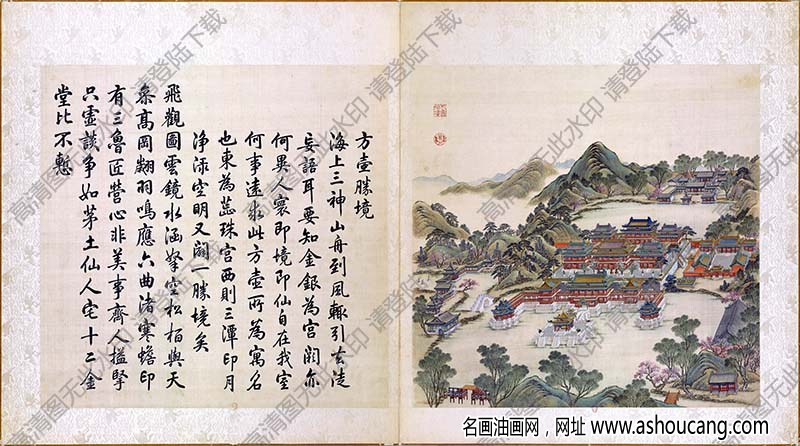 方壺勝境
海上三神山舟到風輒引去徒
妄語耳要知金銀為宮闕亦
何異人寰即境即仙自在我室
何事遠求此方壺所為寓名
也東為蕊珠宮西則三潭印月
淨淥空明又闢一勝境矣
飛觀圖雲鏡水涵拏空松柏與天
叅高岡翽羽鳴應六曲渚寒蟾印
有三魯匠營心非美事齊人搤掔
只虛談爭如茅土仙人宅十二金
堂比不慙
高清图无此水印 请登陆下载
名画油画网，网址 www.ashoucang.com